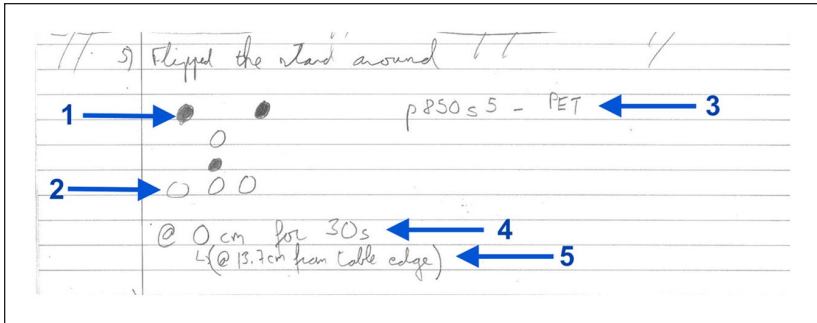 5) Flipped the stand around
1
p850s5 - PET
3
2
@ 0cm for 30s
4
↳(@ 13.7cm from table edge)
5